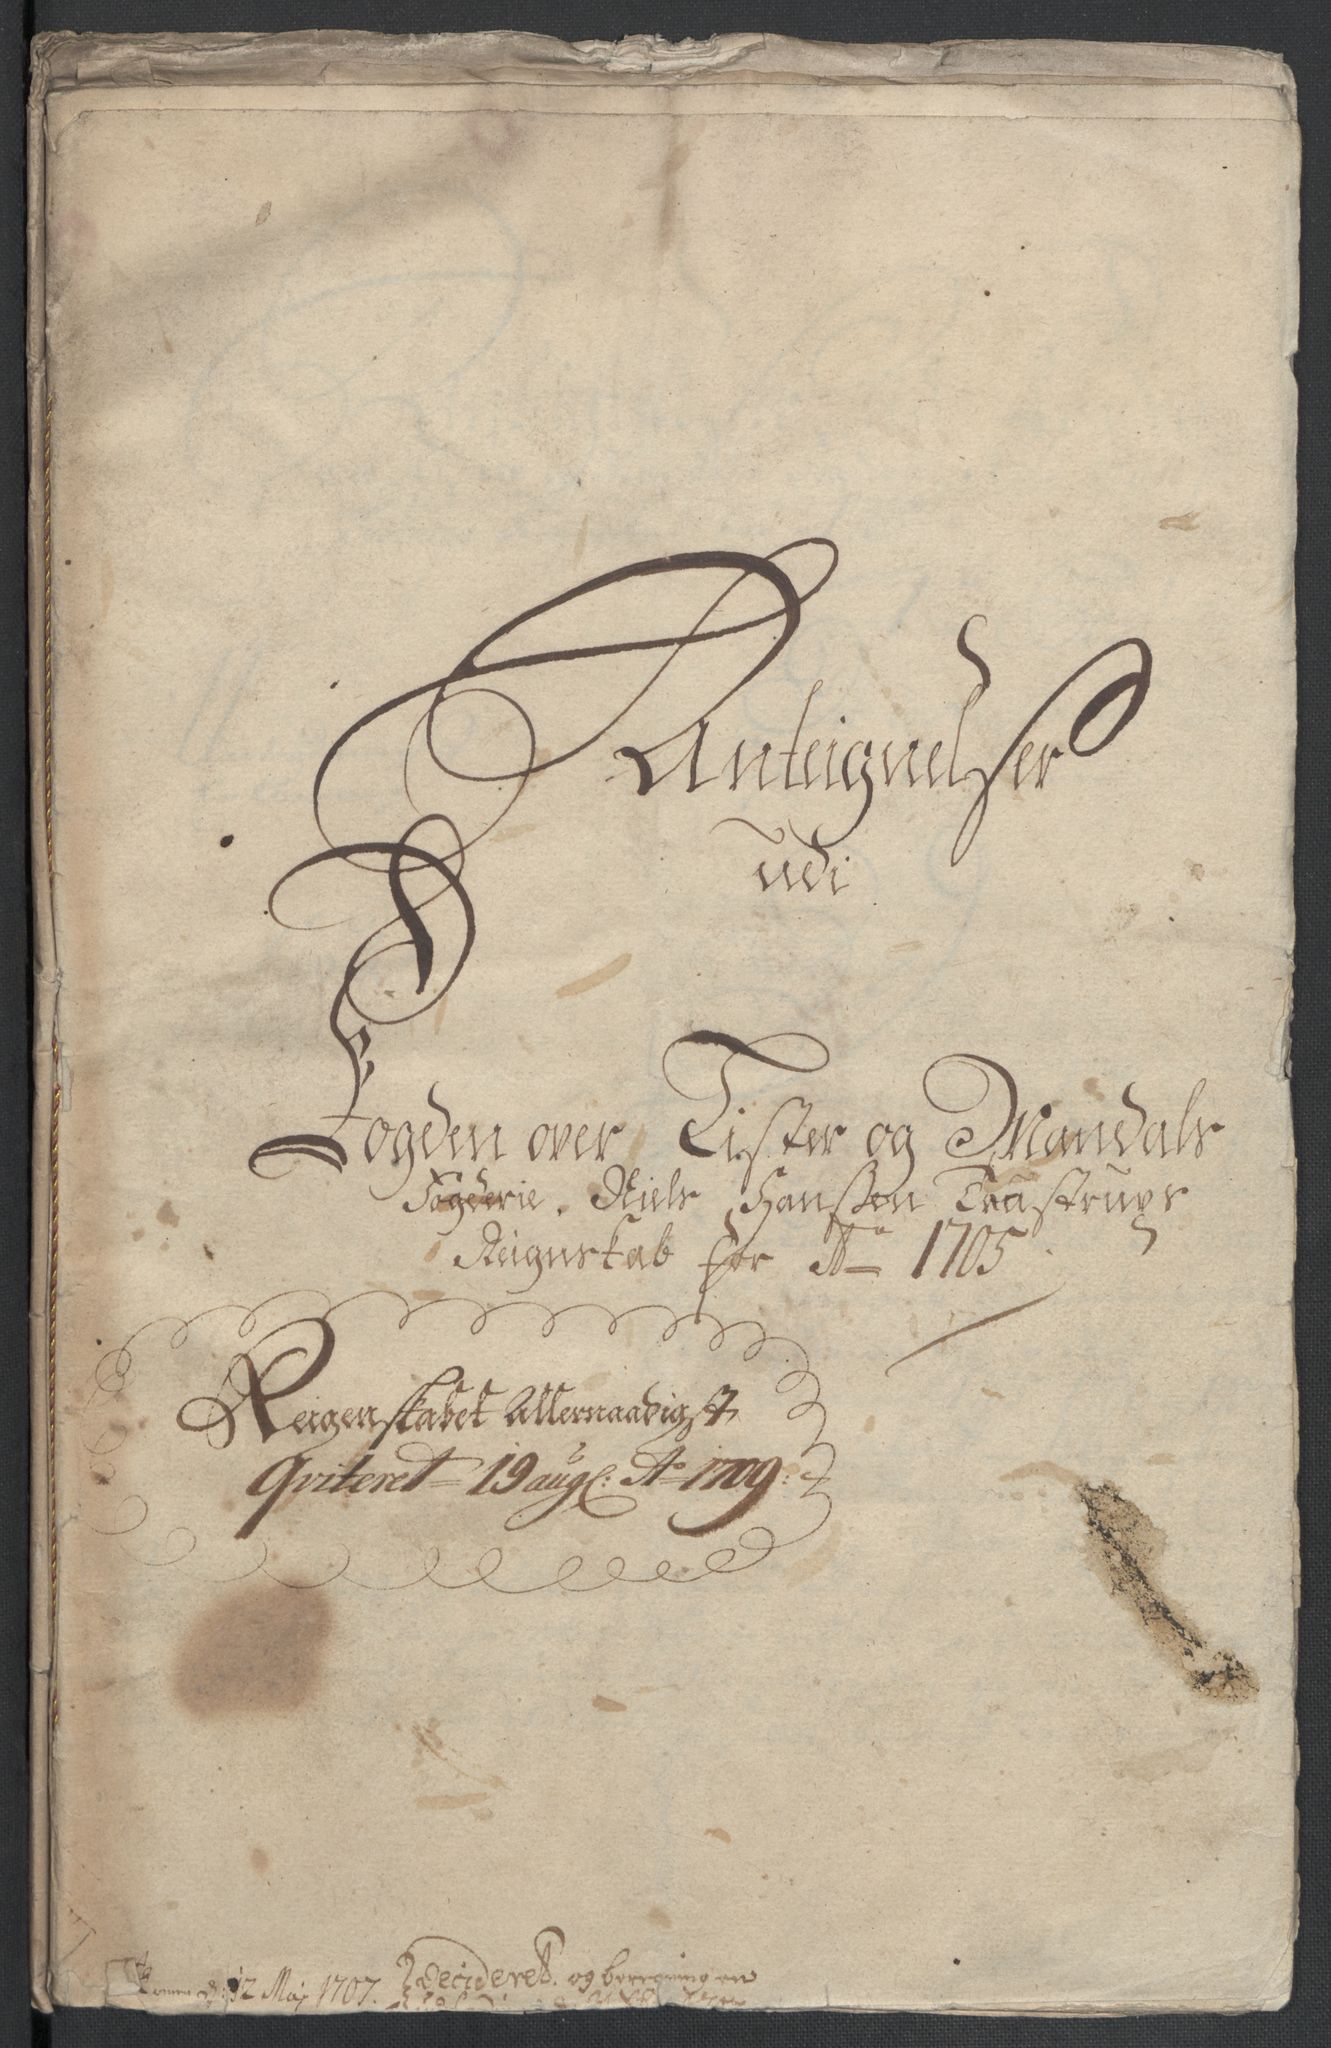 Anteignelser
udi
Fogden over Lister og Mandals
Fogderie. Niels Hanssen Taastrups
Reignskab for Ao 1705
Reigenskabet Allernaadigst
Qviteret 19 aug: Ao 1709
12 Maj 1707. Decideret. og beregning